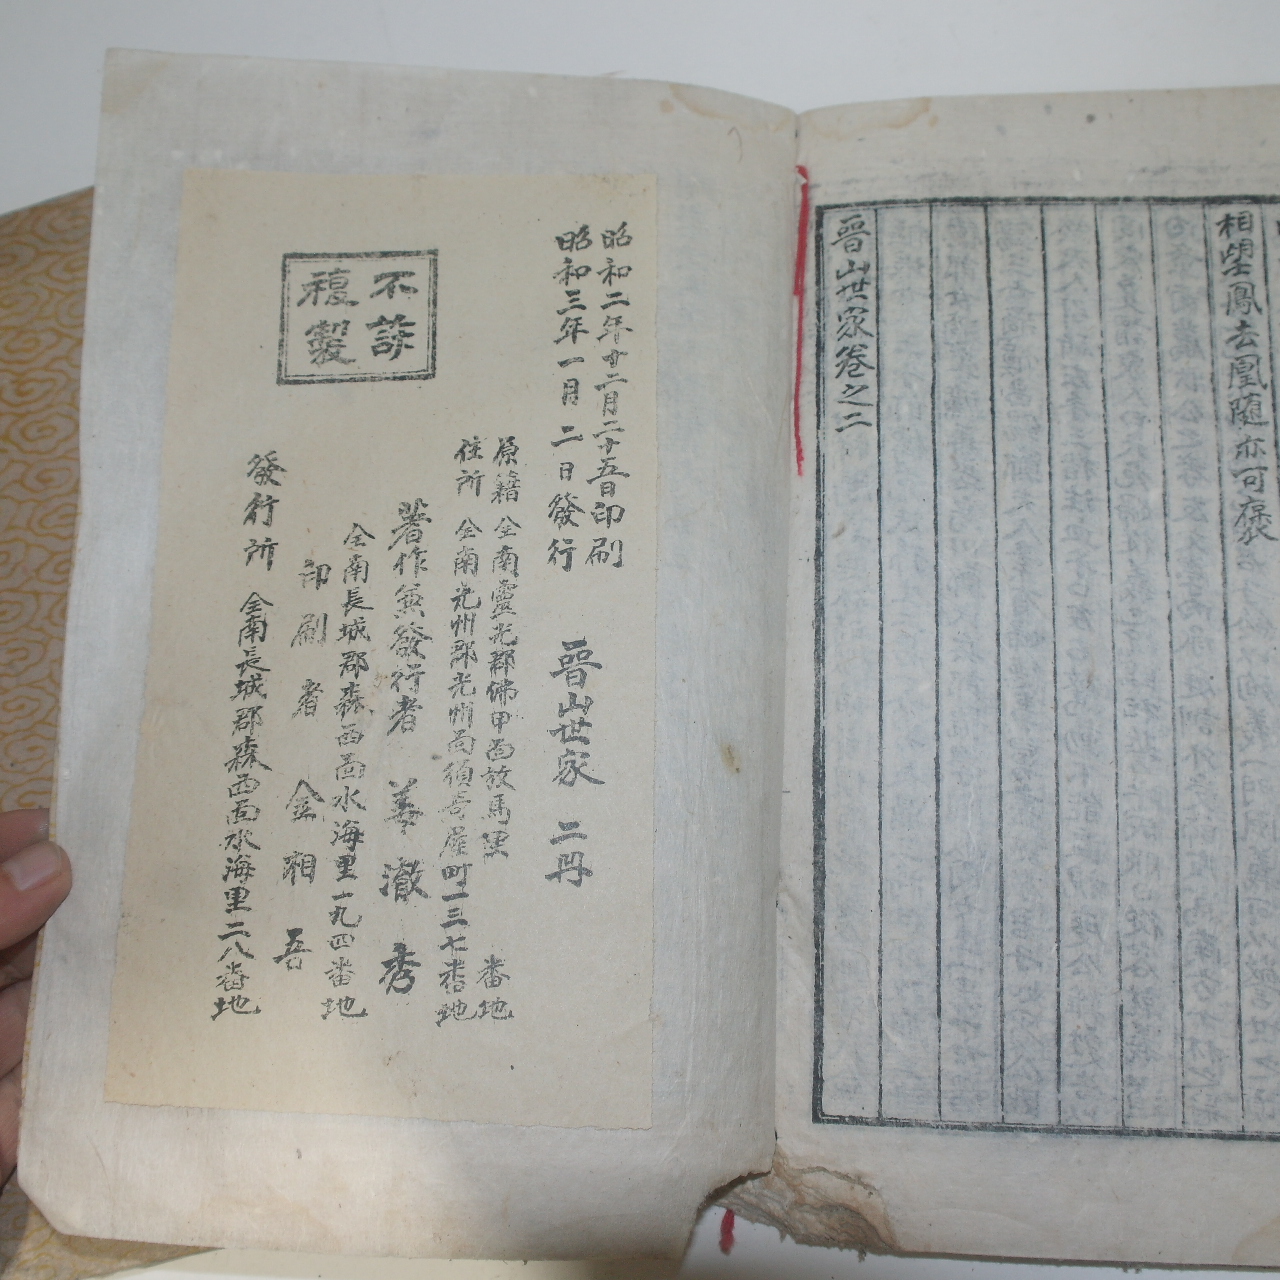 相望鳳去凰隨亦可褒
晉山世家卷之二
昭和二年十二月二十五日印刷
昭和三年一月 二日發行
晉山世家 二冊
原籍 全南靈光郡佛甲面放馬里 番地
住所 全南光州郡光州面須奇屋町一三七番地
著作兼發行者 姜澈秀
全南長城郡森西面水海里一九四番地
印刷者 金相吾
發行所 全南長城郡森西面水海里二八番地
不許
複製